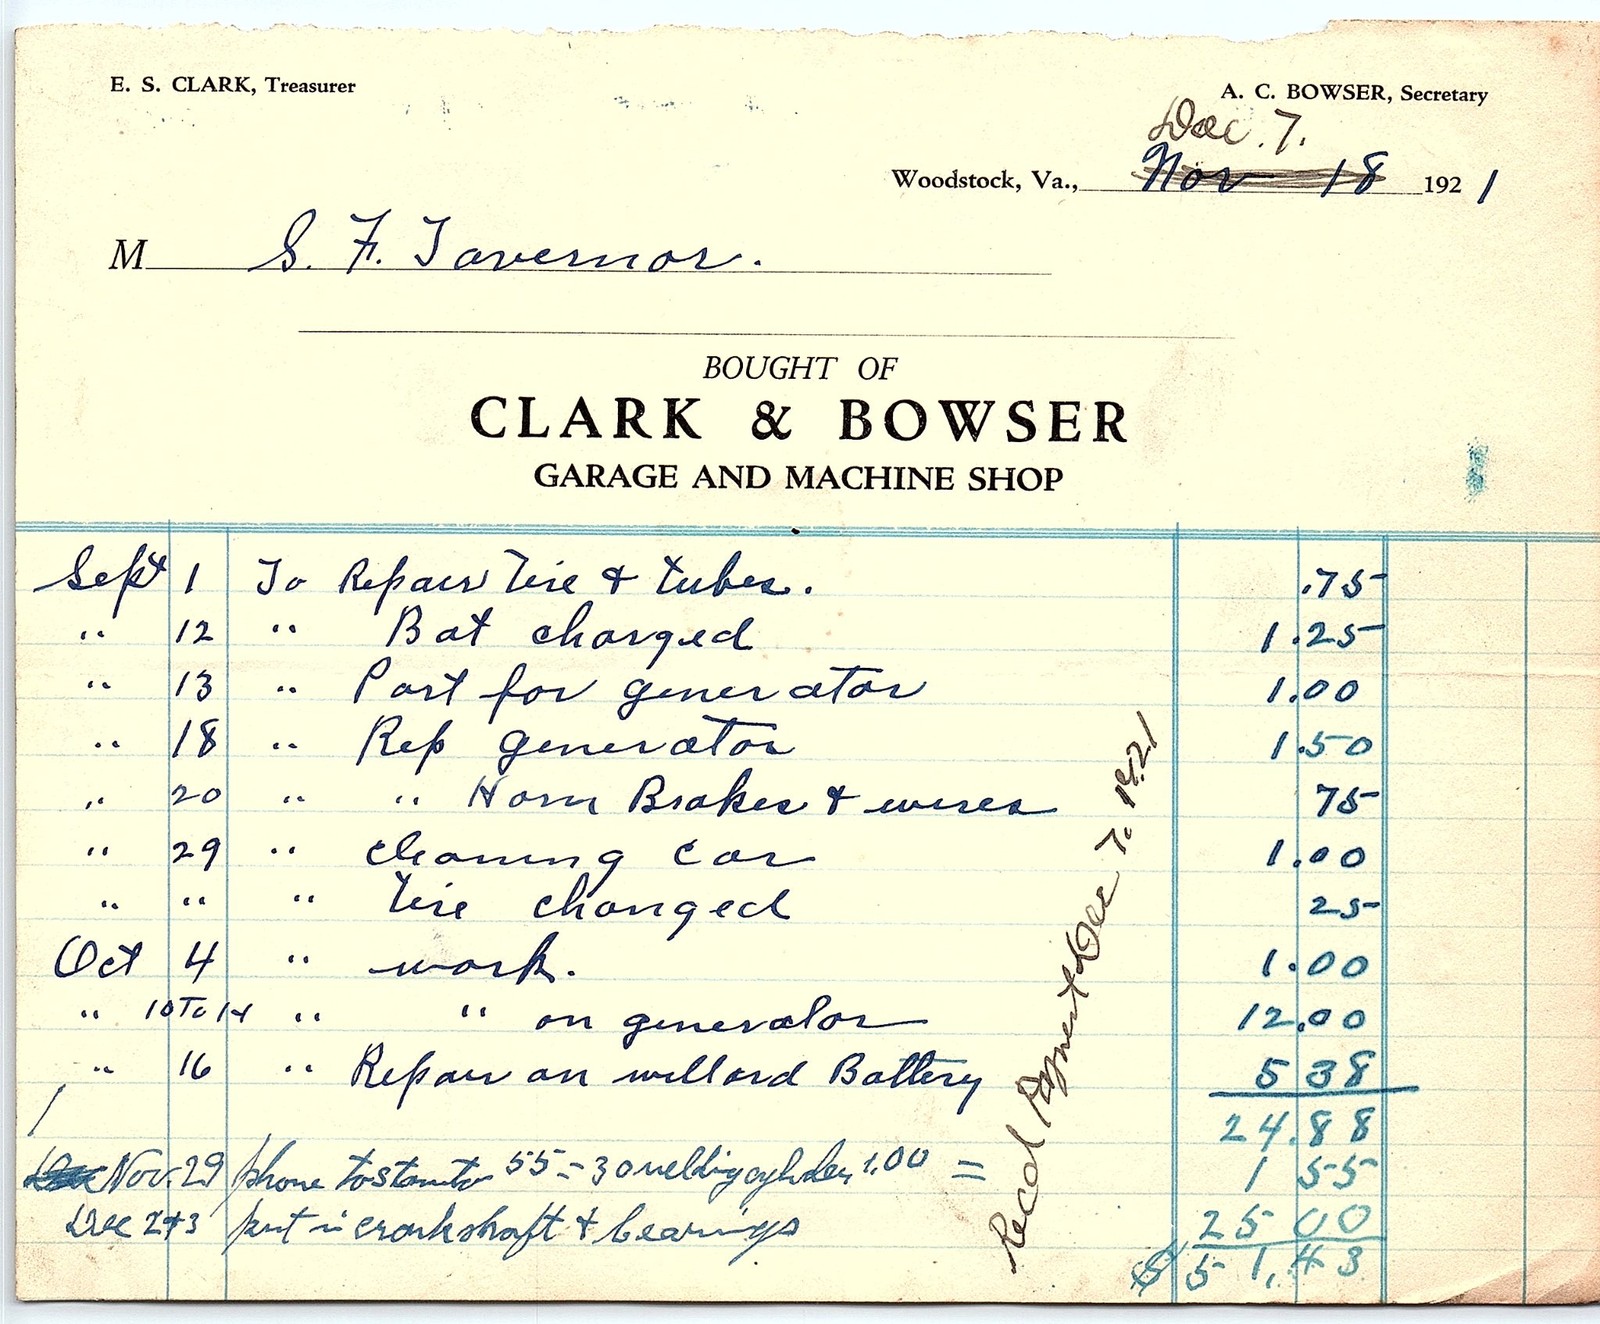 E. S. CLARK, Treasurer
A. C. BOWSER, Secretary
Dec. 7.
Woodstock, Va., Nov 18 1921
M S. F. Tavernor.
BOUGHT OF
CLARK & BOWSER
GARAGE AND MACHINE SHOP
Sept 1 To Repair Tire & tubes. .75
" 12 " Bat charged 1.25
" 13 " Part for generator 1.00
" 18 " Rep generator 1.50
" 20 " " Horn Brakes & wires 75
" 29 " cleaning car 1.00
" " " Tire changed 25
Oct 4 " work. 1.00
" 10 To 14 " " on generator 12.00
" 16 " Repair on willard Battery 5 38
24.88
Nov. 29 phone to 55 - 30 welding cylinder 1.00 = 1 55
Dec 2+3 put in crankshaft & bearings 25 00
$ 51.43
Recd Payment Dec 7. 1921